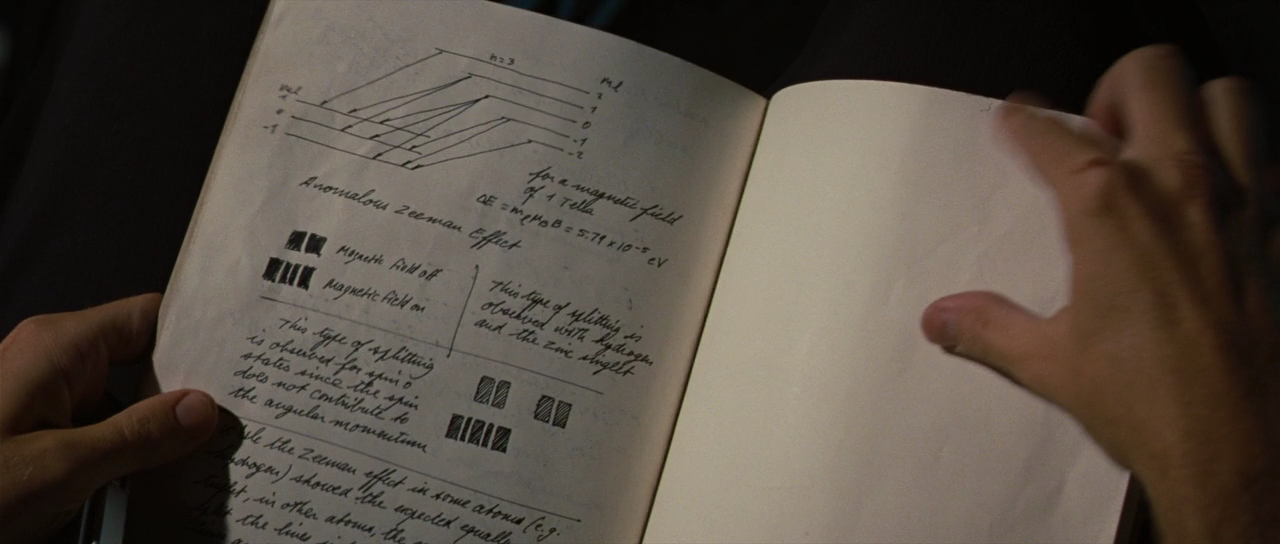 n=3
ml
2
1
0
-1
-2
ml
1
0
-1
for a magnetic field
of 1 Tella
ΔE = mlμBB = 5.79 x 10-5 eV
Anomalous Zeeman Effect
Magnetic field off
Magnetic field on
This type of splitting is
observed with hydrogen
and the zinc singlet
This type of splitting
is observed for spin 0
states since the spin
does not contribute to
the angular momentum
the Zeeman effect in some atoms (e.g.
showed the expected equally
in other atoms, the
the lines